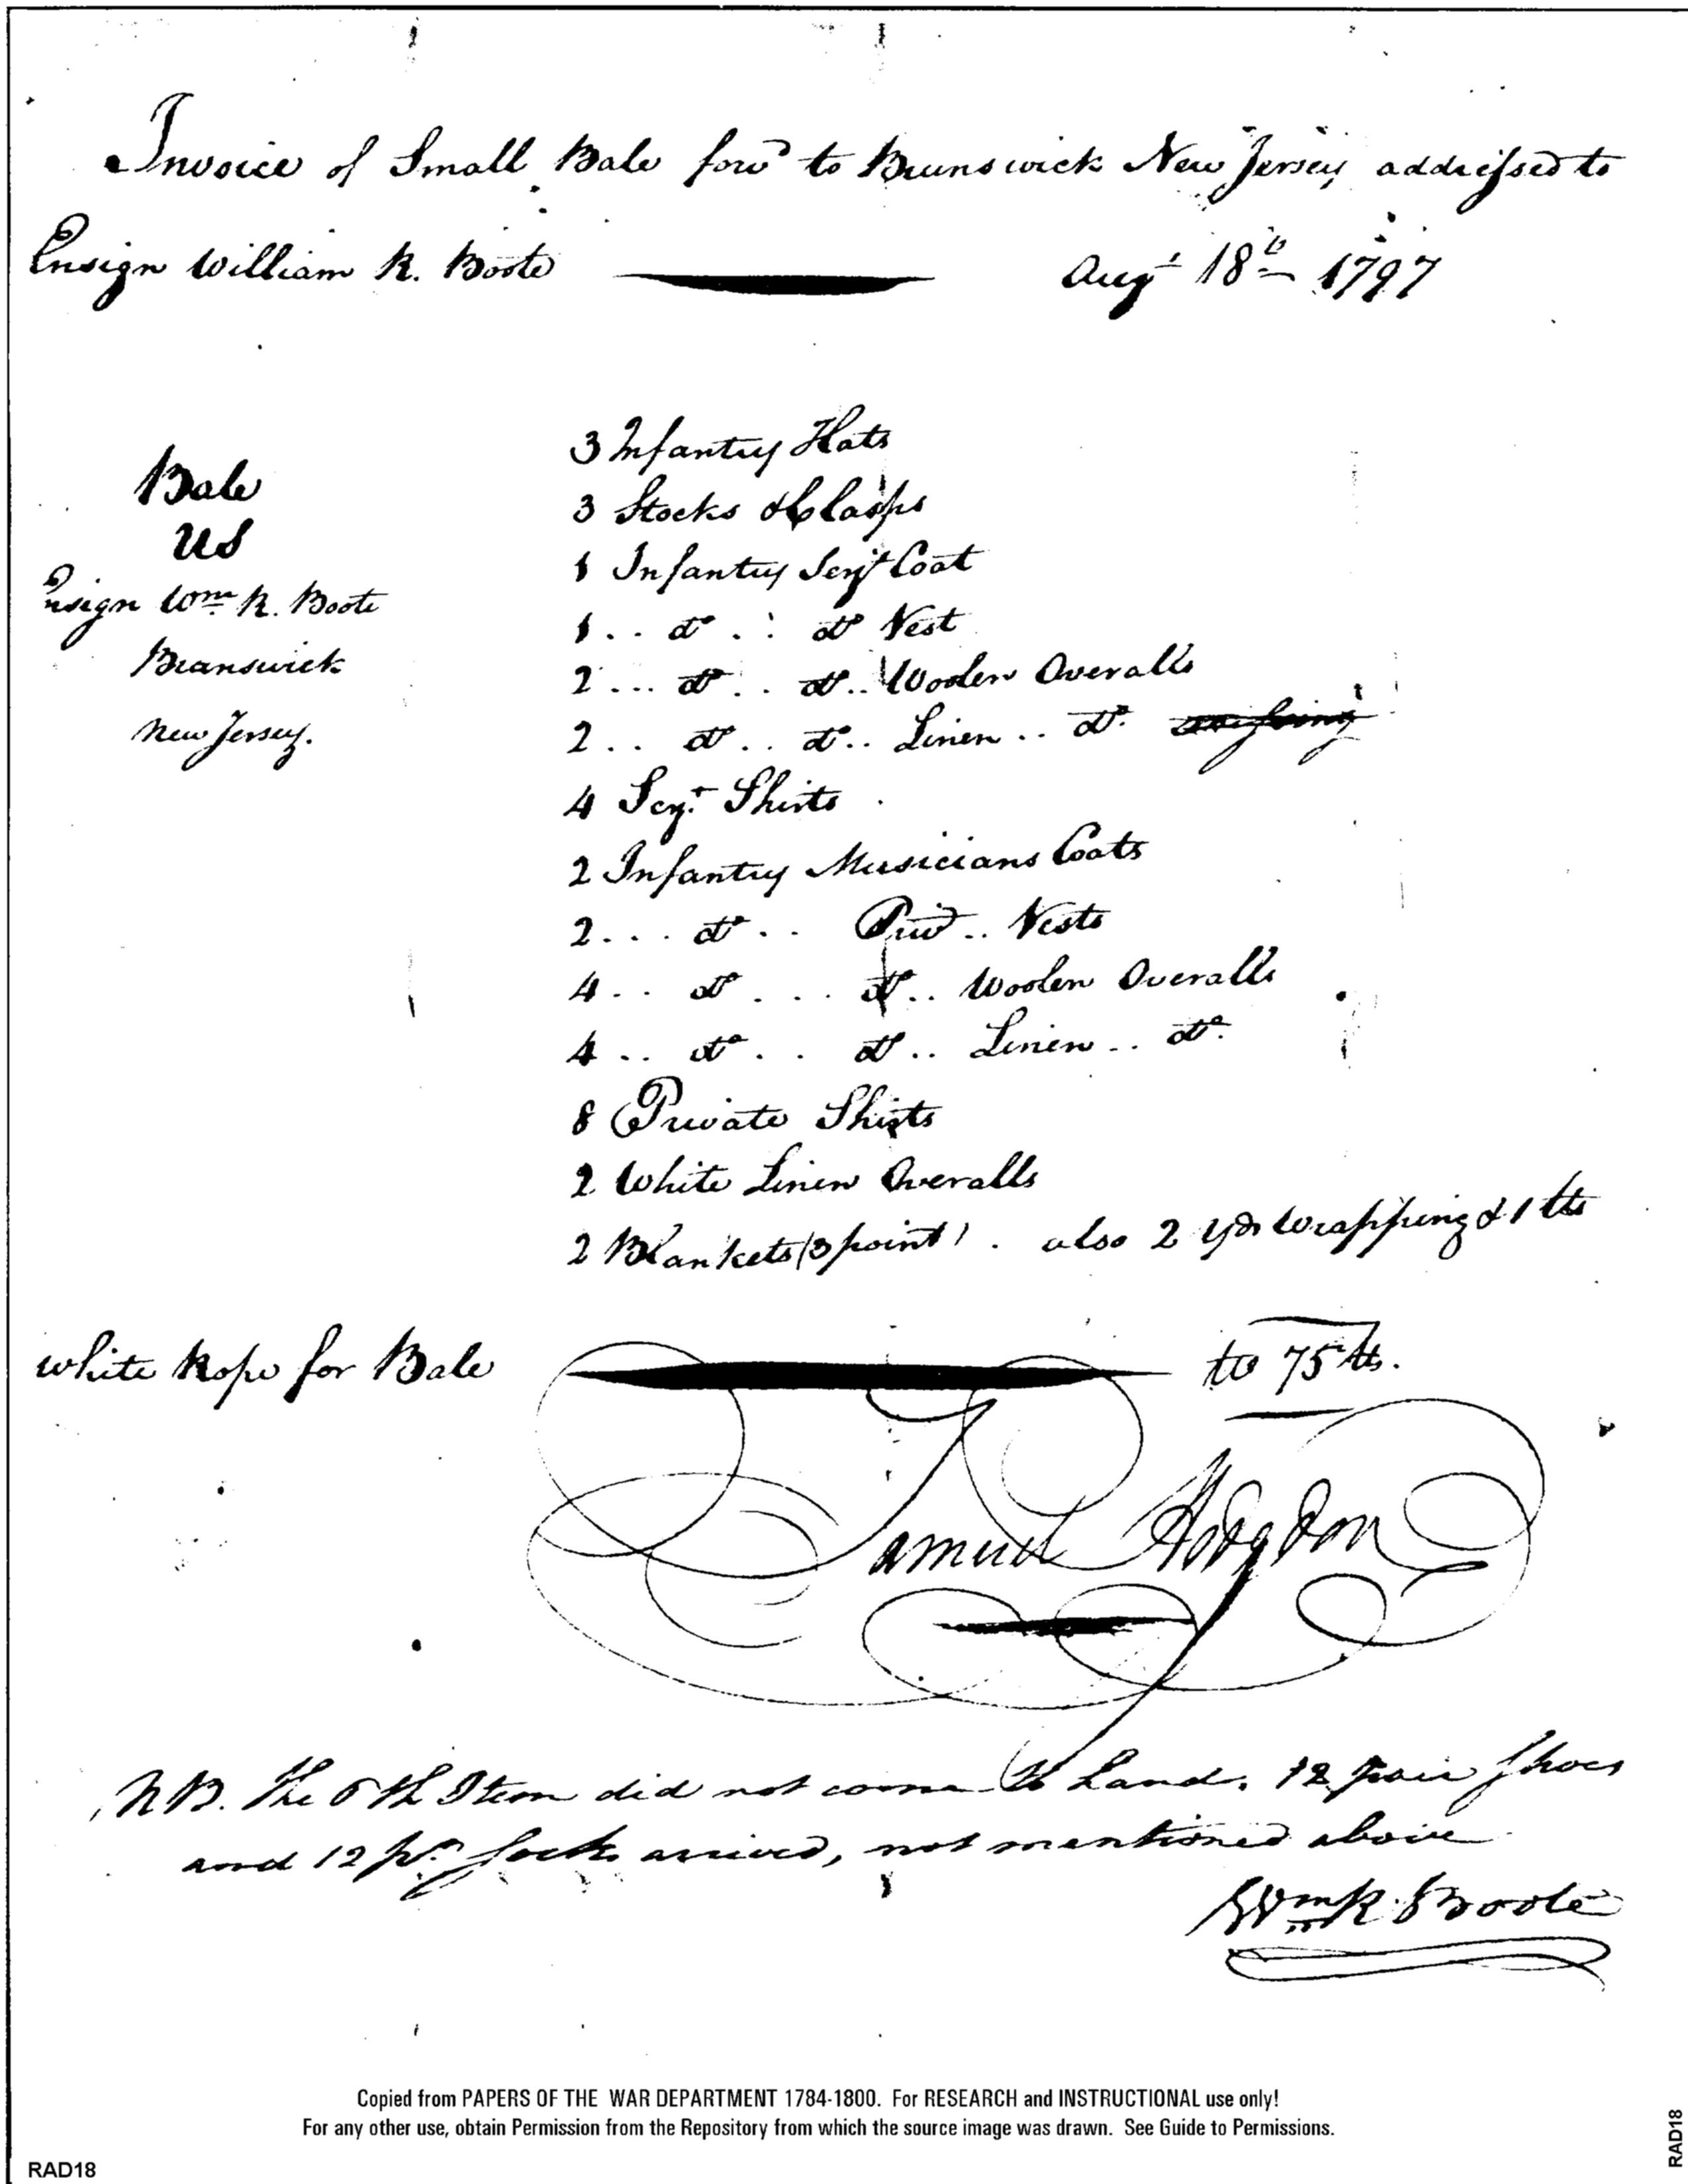 Invoice of Small Bale forwd to Brunswick New Jersey addressed to
Ensign William R. Boote Augt 18th 1797
Bale
US
Ensign Wm R. Boote
Brunswick
New Jersey.
3 Infantry Hats
3 Stocks & Clasps
1 Infantry Serjt Coat
1 .. do .. do Vest
2 ... do .. do .. Woolen Overalls
2 .. do .. do .. Linen .. do.
4 Serjt Shirts
2 Infantry Musicians Coats
2 ... do .. Privt .. Vests
4 .. do ... do .. Woolen Overalls
4 .. do .. do .. Linen .. do.
8 Private Shirts
2 White Linen Overalls
2 Blankets (3 point) . also 2 yds wrapping & 1 lb
white Rope for Bale wt 75 lbs.
Samuel Hodgdon
NB. The 6th Item did not come to hand. 12 pair Shoes
and 12 pr. Socks arrived, not mentioned above
Wm R. Boote
Copied from PAPERS OF THE WAR DEPARTMENT 1784-1800. For RESEARCH and INSTRUCTIONAL use only!
For any other use, obtain Permission from the Repository from which the source image was drawn. See Guide to Permissions.
RAD18
RAD18